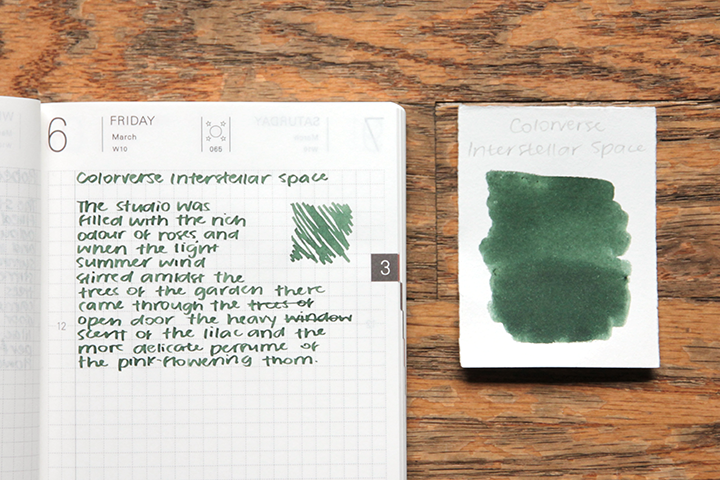 6
FRIDAY
March
W10
065
SATURDAY
7
March
Colorverse Interstellar Space
The studio was
filled with the rich
odour of roses, and
when the light
summer wind
stirred amidst the
trees of the garden there
came through the trees of
open door the heavy window
scent of the lilac and the
more delicate perfume of
the pink-flowering thorn.
12
3
Colorverse
Interstellar Space